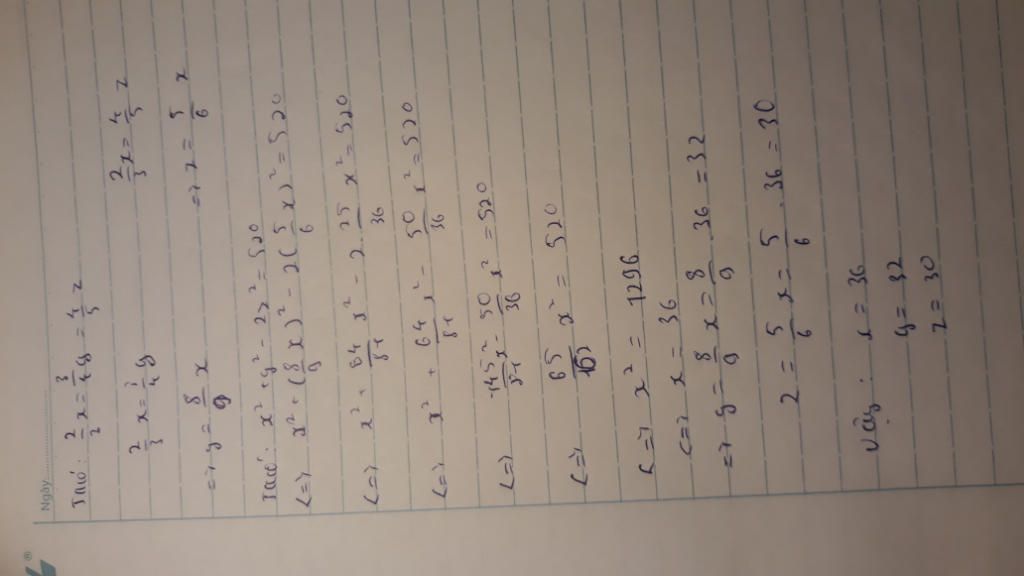 Ngày
Ta có: 2/2 x = 3/4 y = 4/5 z
2/3 x = 3/4 y    2/3 x = 4/5 z
=> y = 8/9 x    => z = 5/6 x
Ta có: x² + y² - 2z² = 520
<=> x² + (8/9 x)² - 2(5/6 x)² = 520
<=> x² + 64/81 x² - 2. 25/36 x² = 520
<=> x² + 64/81 x² - 50/36 x² = 520
<=> 145/81 x² - 50/36 x² = 520
<=> 65/162 x² = 520
<=> x² = 1296
<=> x = 36
=> y = 8/9 x = 8/9 36 = 32
z = 5/6 x = 5/6 . 36 = 30
Vậy: x = 36
y = 32
z = 30